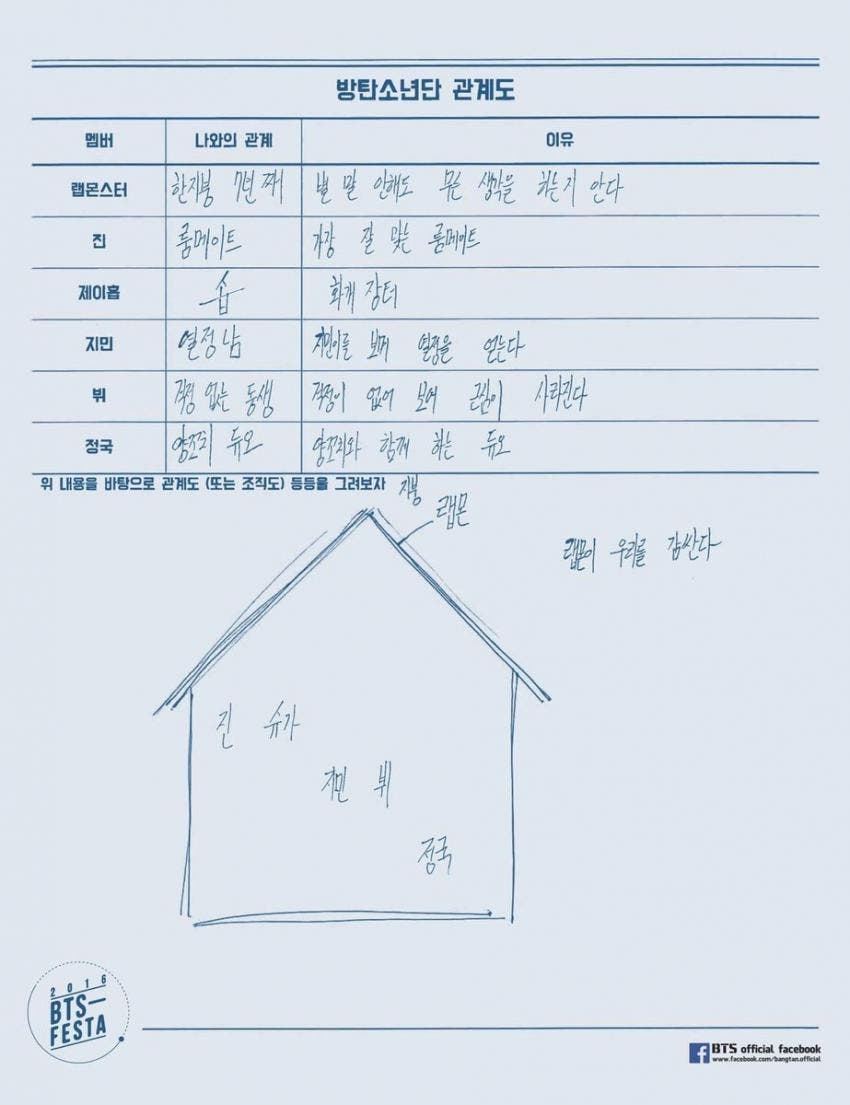 방탄소년단 관계도
멤버 나와의 관계 이유
랩몬스터 한지붕 7년 째 별 말 안해도 무슨 생각을 하는지 안다
진 룸메이트 가장 잘 맞는 룸메이트
제이홉 솝 화개 장터
지민 열정남 지민이를 보며 열정을 얻는다
뷔 걱정 없는 동생 걱정이 없어 보여 근심이 사라진다
정국 양조리 듀오 양조리와 함께 하는 듀오
위 내용을 바탕으로 관계도 (또는 조직도) 등등을 그려보자
지붕
랩몬
랩몬이 우리를 감싼다
진 슈가
지민 뷔
정국
2016
BTS
FESTA
BTS official facebook
www.facebook.com/bangtan.official